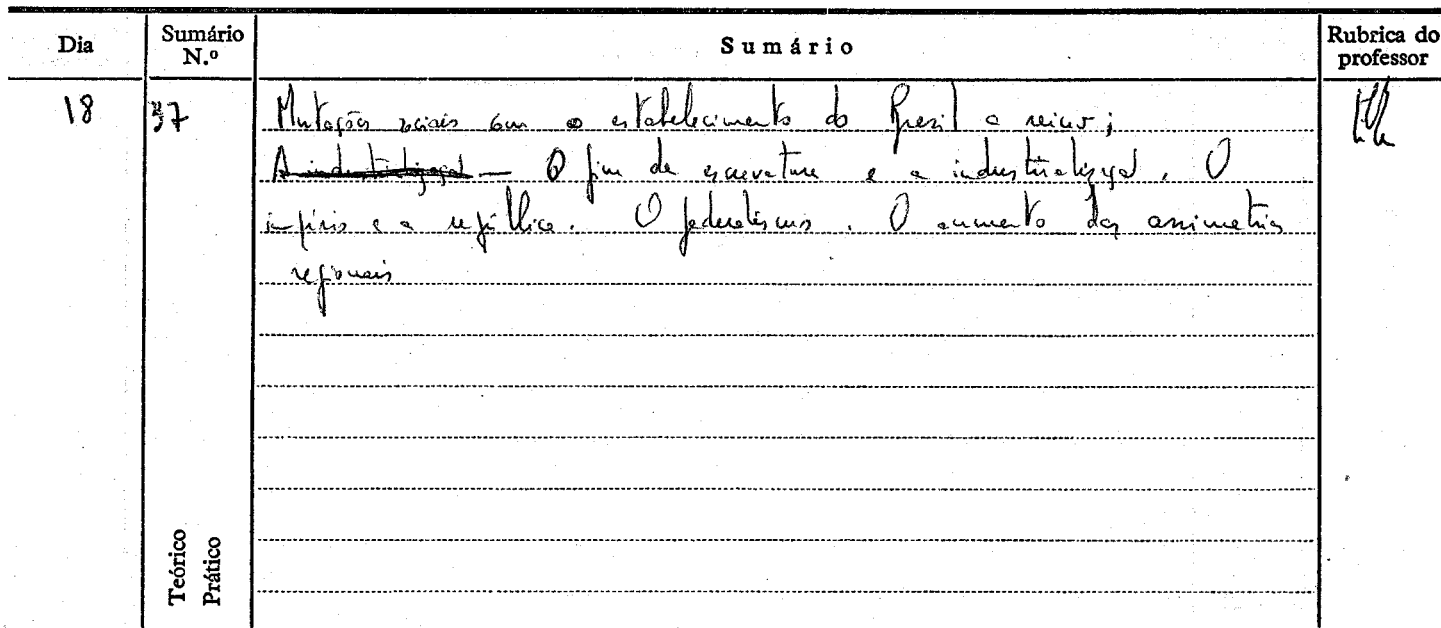 Dia Sumário N.º Sumário Rubrica do professor
18 37 Mutações sociais com o estabelecimento do Brasil a reino;
A industrialização — O fim da escravatura e a industrialização. O
império e a república. O federalismo. O aumento das assimetrias
regionais
Teórico
Prático